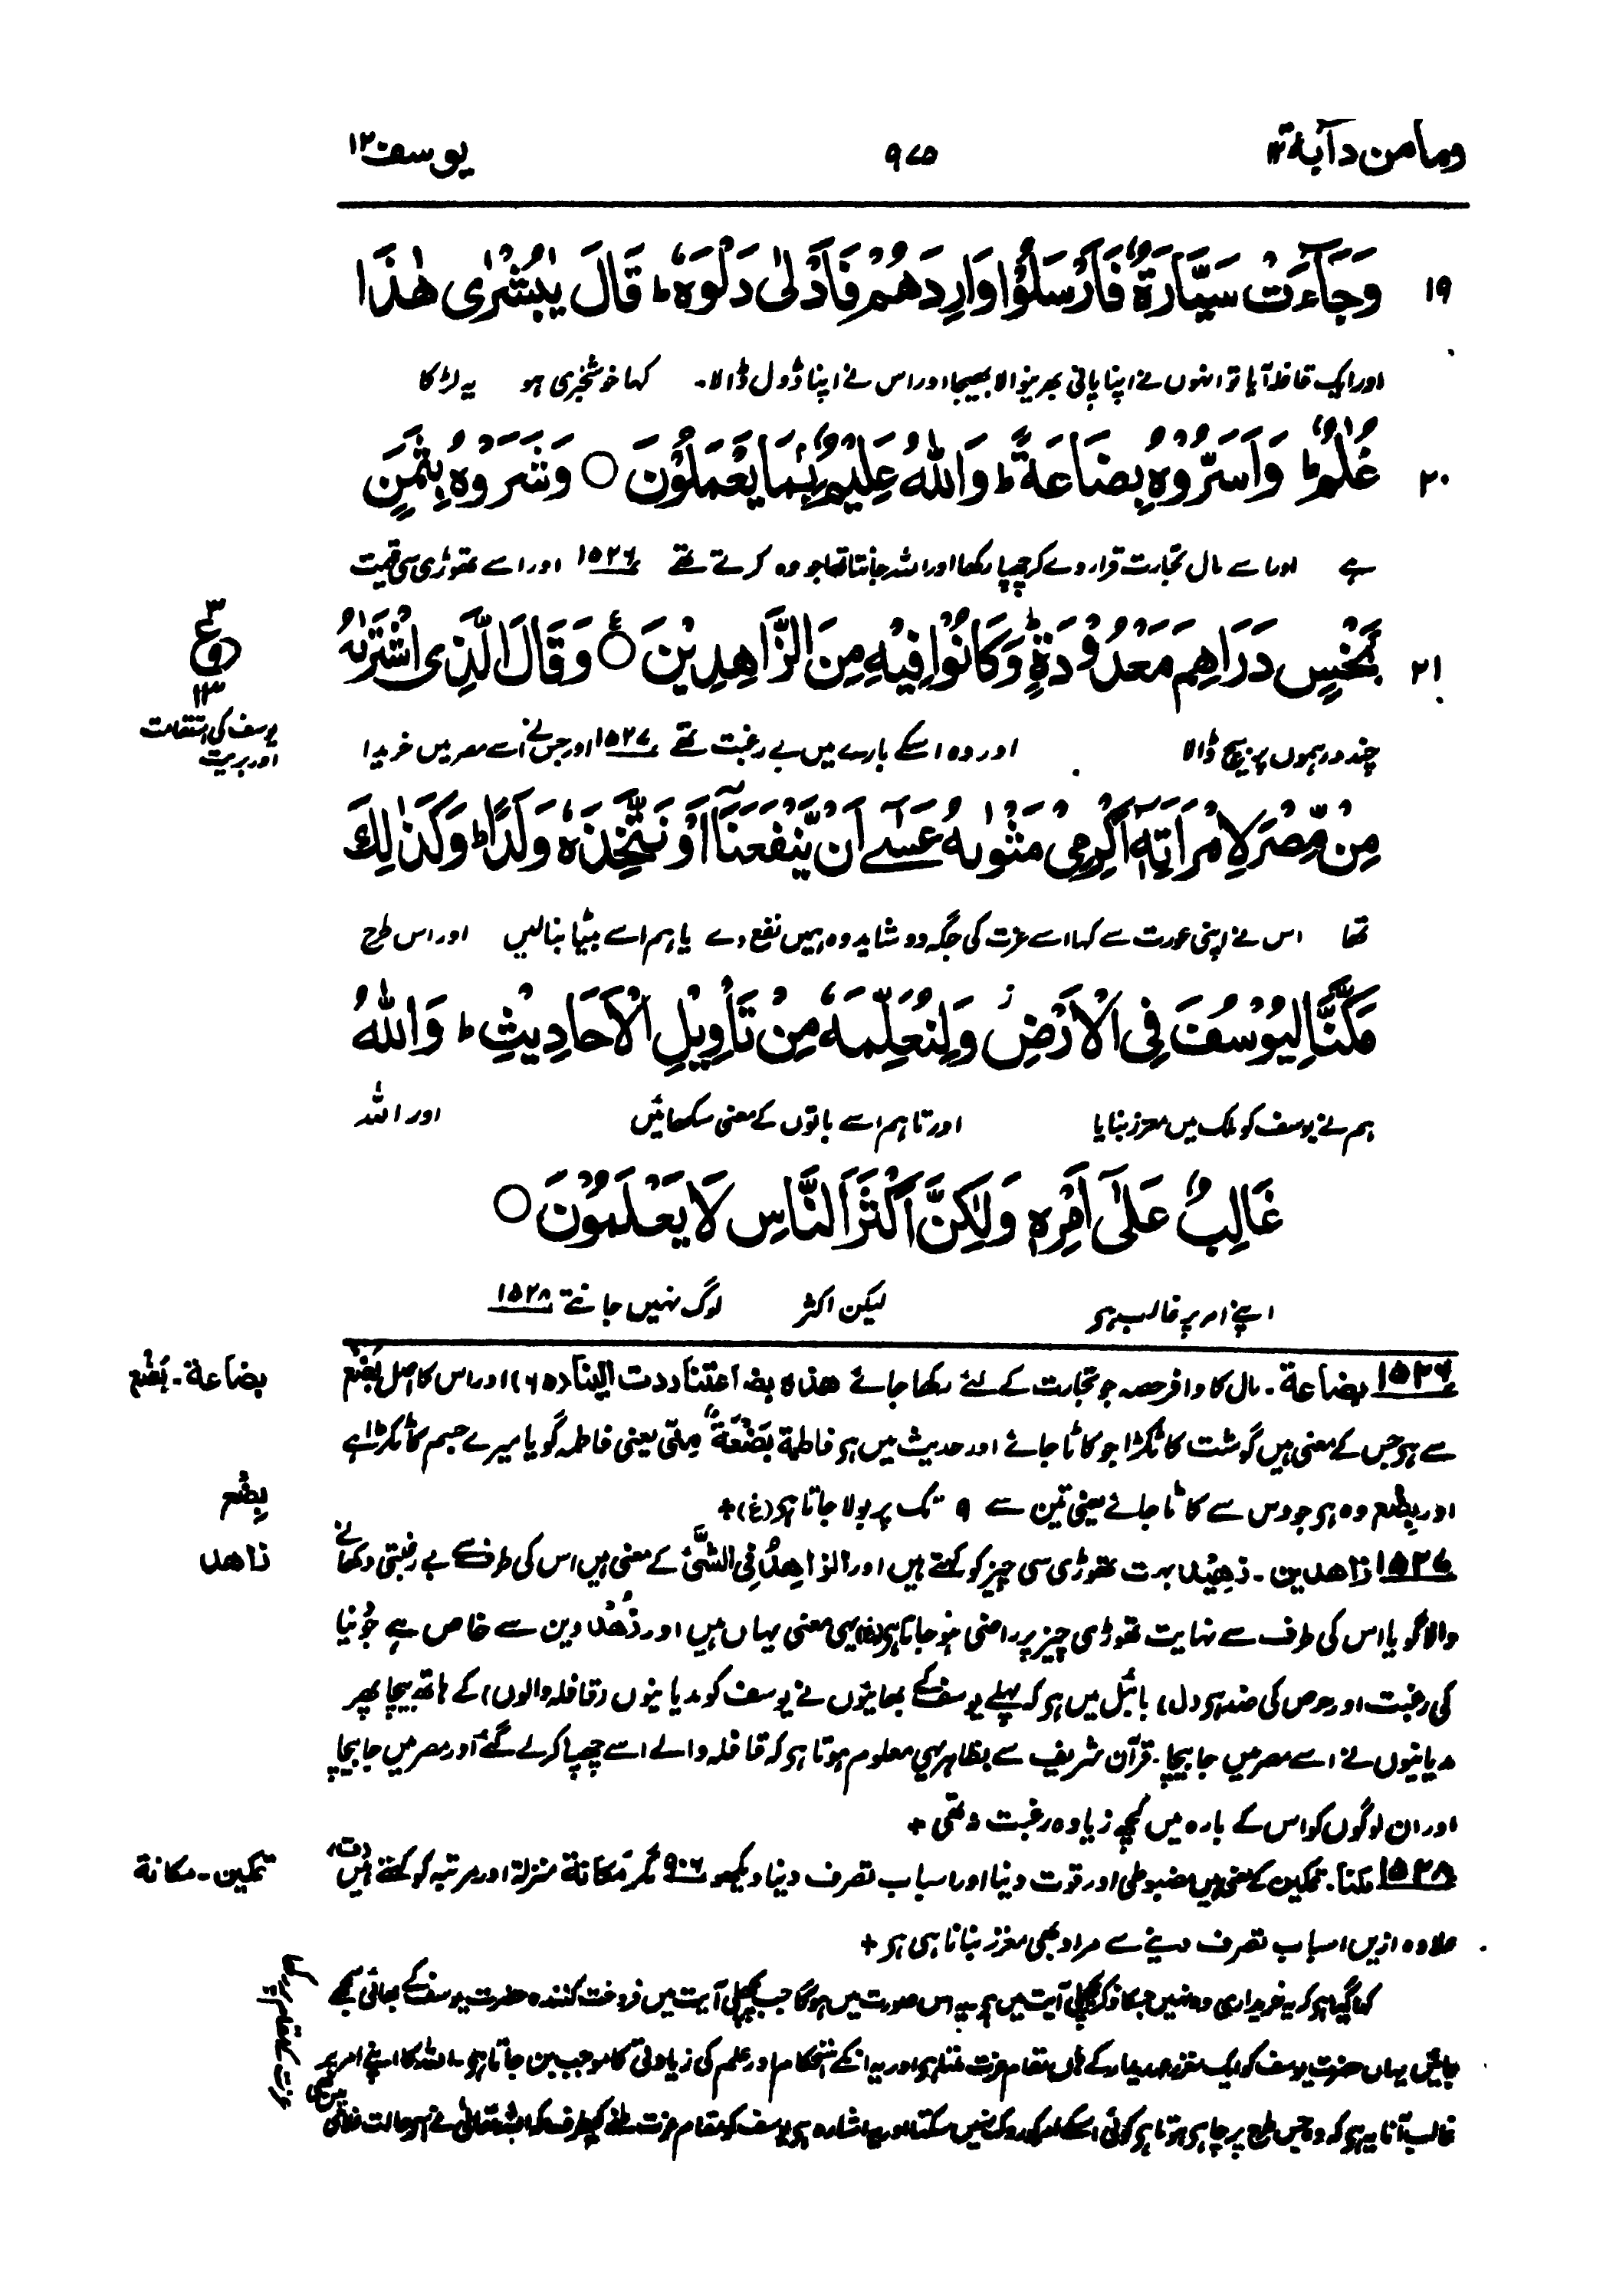 وما من دآبة ۱۲
۹۷۵
یوسف ۱۲
۱۹
وَجَآءَتْ سَيَّارَةٌ فَاَرْسَلُوْا وَارِدَهُمْ فَاَدْلٰى دَلْوَهٗ ؕ قَالَ يٰبُشْرٰى هٰذَا
اور ایک قافلہ آیا تو انہوں نے اپنا پانی بھرنیوالا بھیجا اور اس نے اپنا ڈول ڈالا۔ کہا خوشخبری ہو یہ لڑکا
۲۰
غُلٰمٌ ؕ وَاَسَرُّوْهُ بِضَاعَةً ؕ وَاللّٰهُ عَلِيْمٌۢ بِمَا يَعْمَلُوْنَ ○ وَشَرَوْهُ بِثَمَنٍۭ
ہے اور اسے مال تجارت قرار دے کر چھپا رکھا اور اللہ جانتا تھا جو وہ کرتے تھے ۱۵۲۶ اور اسے تھوڑی سی قیمت
۲۱
بَخْسٍ دَرَاهِمَ مَعْدُوْدَةٍ ۚ وَكَانُوْا فِيْهِ مِنَ الزَّاهِدِيْنَ ○ وَقَالَ الَّذِى اشْتَرٰىهُ
۲ ع ۱۳
یوسف کی استقامت
اور بریت
چند درہموں پر بیچ ڈالا اور وہ اسکے بارے میں بے رغبت تھے ۱۵۲۷ اور جس نے اسے مصر میں خریدا
مِنْ مِّصْرَ لِامْرَاَتِهٖۤ اَكْرِمِىْ مَثْوٰىهُ عَسٰۤى اَنْ يَّنْفَعَنَاۤ اَوْ نَتَّخِذَهٗ وَلَدًا ؕ وَكَذٰلِكَ
تھا اس نے اپنی عورت سے کہا اسے عزت کی جگہ دو شاید وہ ہمیں نفع دے یا ہم اسے بیٹا بنالیں اور اس طرح
مَكَّنَّا لِيُوْسُفَ فِى الْاَرْضِ ؗ وَلِنُعَلِّمَهٗ مِنْ تَاْوِيْلِ الْاَحَادِيْثِ ؕ وَاللّٰهُ
ہم نے یوسف کو ملک میں معزز بنایا اور تا ہم اسے باتوں کے معنی سکھائیں اور اللہ
غَالِبٌ عَلٰٓى اَمْرِهٖ وَلٰكِنَّ اَكْثَرَ النَّاسِ لَا يَعْلَمُوْنَ ○
اپنے امر پر غالب ہی لیکن اکثر لوگ نہیں جانتے ۱۵۲۸
بضاعة ۔ بَضْع
۱۵۲۶ بضاعة۔ مال کا وافر حصہ جو تجارت کے لئے رکھا جائے هذه بضاعتنا ردت الینا (۶۵) اور اس کا اصل بَضْع
سے ہی جس کے معنی ہیں گوشت کا ٹکڑا جو کاٹا جائے اور حدیث میں ہی فاطمة بَضْعَةٌ مِنّی یعنی فاطمہ گویا میرے جسم کا ٹکڑا ہے
بِضْع
اور بِضْع وہ ہی جو دس سے کاٹا جائے یعنی تین سے ۹ تک پر بولا جاتا ہی (غ)+
زاهد
۱۵۲۷ زاهدین۔ زهید بہت تھوڑی سی چیز کو کہتے ہیں اور الزاهِدُ فِی الشَّیْ کے معنی ہیں اس کی طرف سے بے رغبتی دکھانے
والا گویا اس کی طرف سے نہایت تھوڑی چیز پر راضی ہو جاتا ہی (غ) یہی معنی یہاں ہیں اور زُهْد دین سے خاص ہے جو دنیا
کی رغبت اور حرص کی ضد ہی (ل) بائبل میں ہی کہ پہلے یوسف کے بھائیوں نے یوسف کو مدیانیوں (قافلہ والوں) کے ہاتھ بیچا پھر
مدیانیوں نے اسے مصر میں جا بیچا۔ قرآن شریف سے بظاہر یہی معلوم ہوتا ہی کہ قافلہ والے اسے چھپا کر لے گئے اور مصر میں جا بیچا
اور ان لوگوں کو اس کے بارہ میں کچھ زیادہ رغبت نہ تھی +
تمکین ۔ مکانة
۱۵۲۸ مکنا۔ تمکین کے معنی ہیں مضبوطی اور قوت دینا اور اسباب تصرف دینا دیکھو ۹۰۶ مگر مَکَانة منزلة اور مرتبہ کو کہتے ہیں (ت)
علاوہ ازیں اسباب تصرف دینے سے مراد بھی معزز بنانا ہی ہی +
کہا گیا ہی کہ یہ خریداری وہ نہیں جسکا ذکر پچھلی آیت میں ہی یہ اس صورت میں ہوگا جب پچھلی آیت میں فروخت کنندہ حضرت یوسف کے بھائی سمجھے
جائیں یہاں حضرت یوسف کو ایک معزز عہدیدار کے ہاں مقام عزت ملتا ہی اور یہ انکے استحکام اور علم کی زیادتی کا موجب بن جاتا ہی۔ اللہ کا اپنے امر پر
غالب آنا یہ ہی کہ وہ جس طرح پر چاہے ہوتا ہی کوئی اسکے امر کو روک نہیں سکتا اور یہ اشارہ ہی یوسف کو مقام عزت ملنے کی طرف کہ اللہ تعالیٰ نے ہر حالت